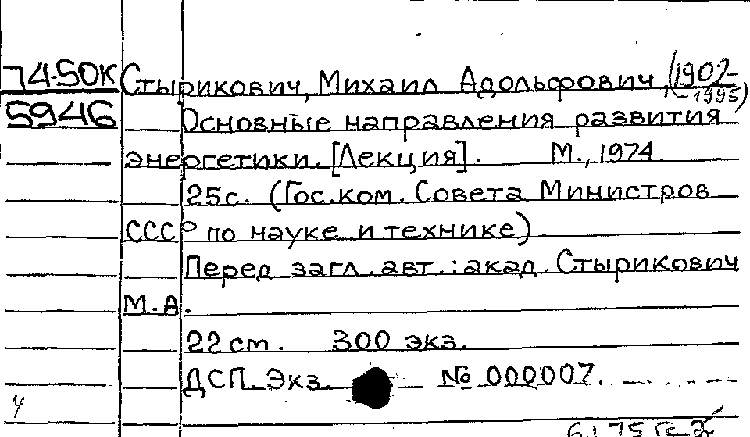 74-50К Стырикович, Михаил Адольфович, (1902-
5946 1995)
Основные направления развития
энергетики. [Лекция]. М., 1974
25с. (Гос. ком. Совета Министров
СССР по науке и технике)
Перед загл. авт.: акад. Стырикович
М.А.
22 см. 300 экз.
ДСП. Экз. № 000007.